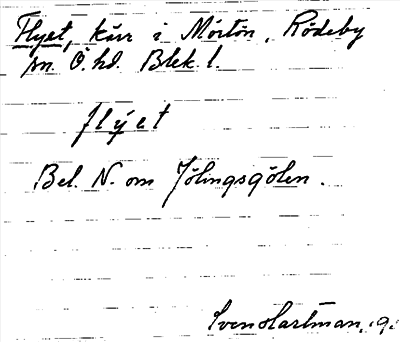 Flyet, kärr i Mörtön, Rödeby
sn. Ö. hd. Blek. l.
flýet
Bel. N. om Jölingsgölen.
Sven Hartman,